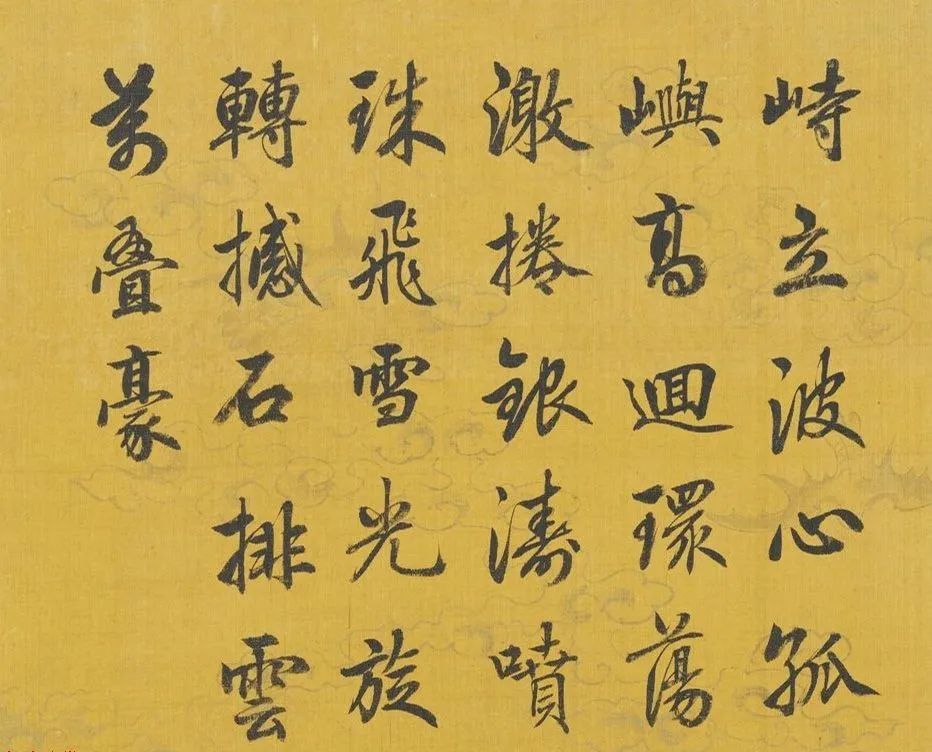 峙立波心孤
嶼高迴環蕩
激捲銀濤噴
珠飛雪光旋
轉撼石排雲
萬疊豪